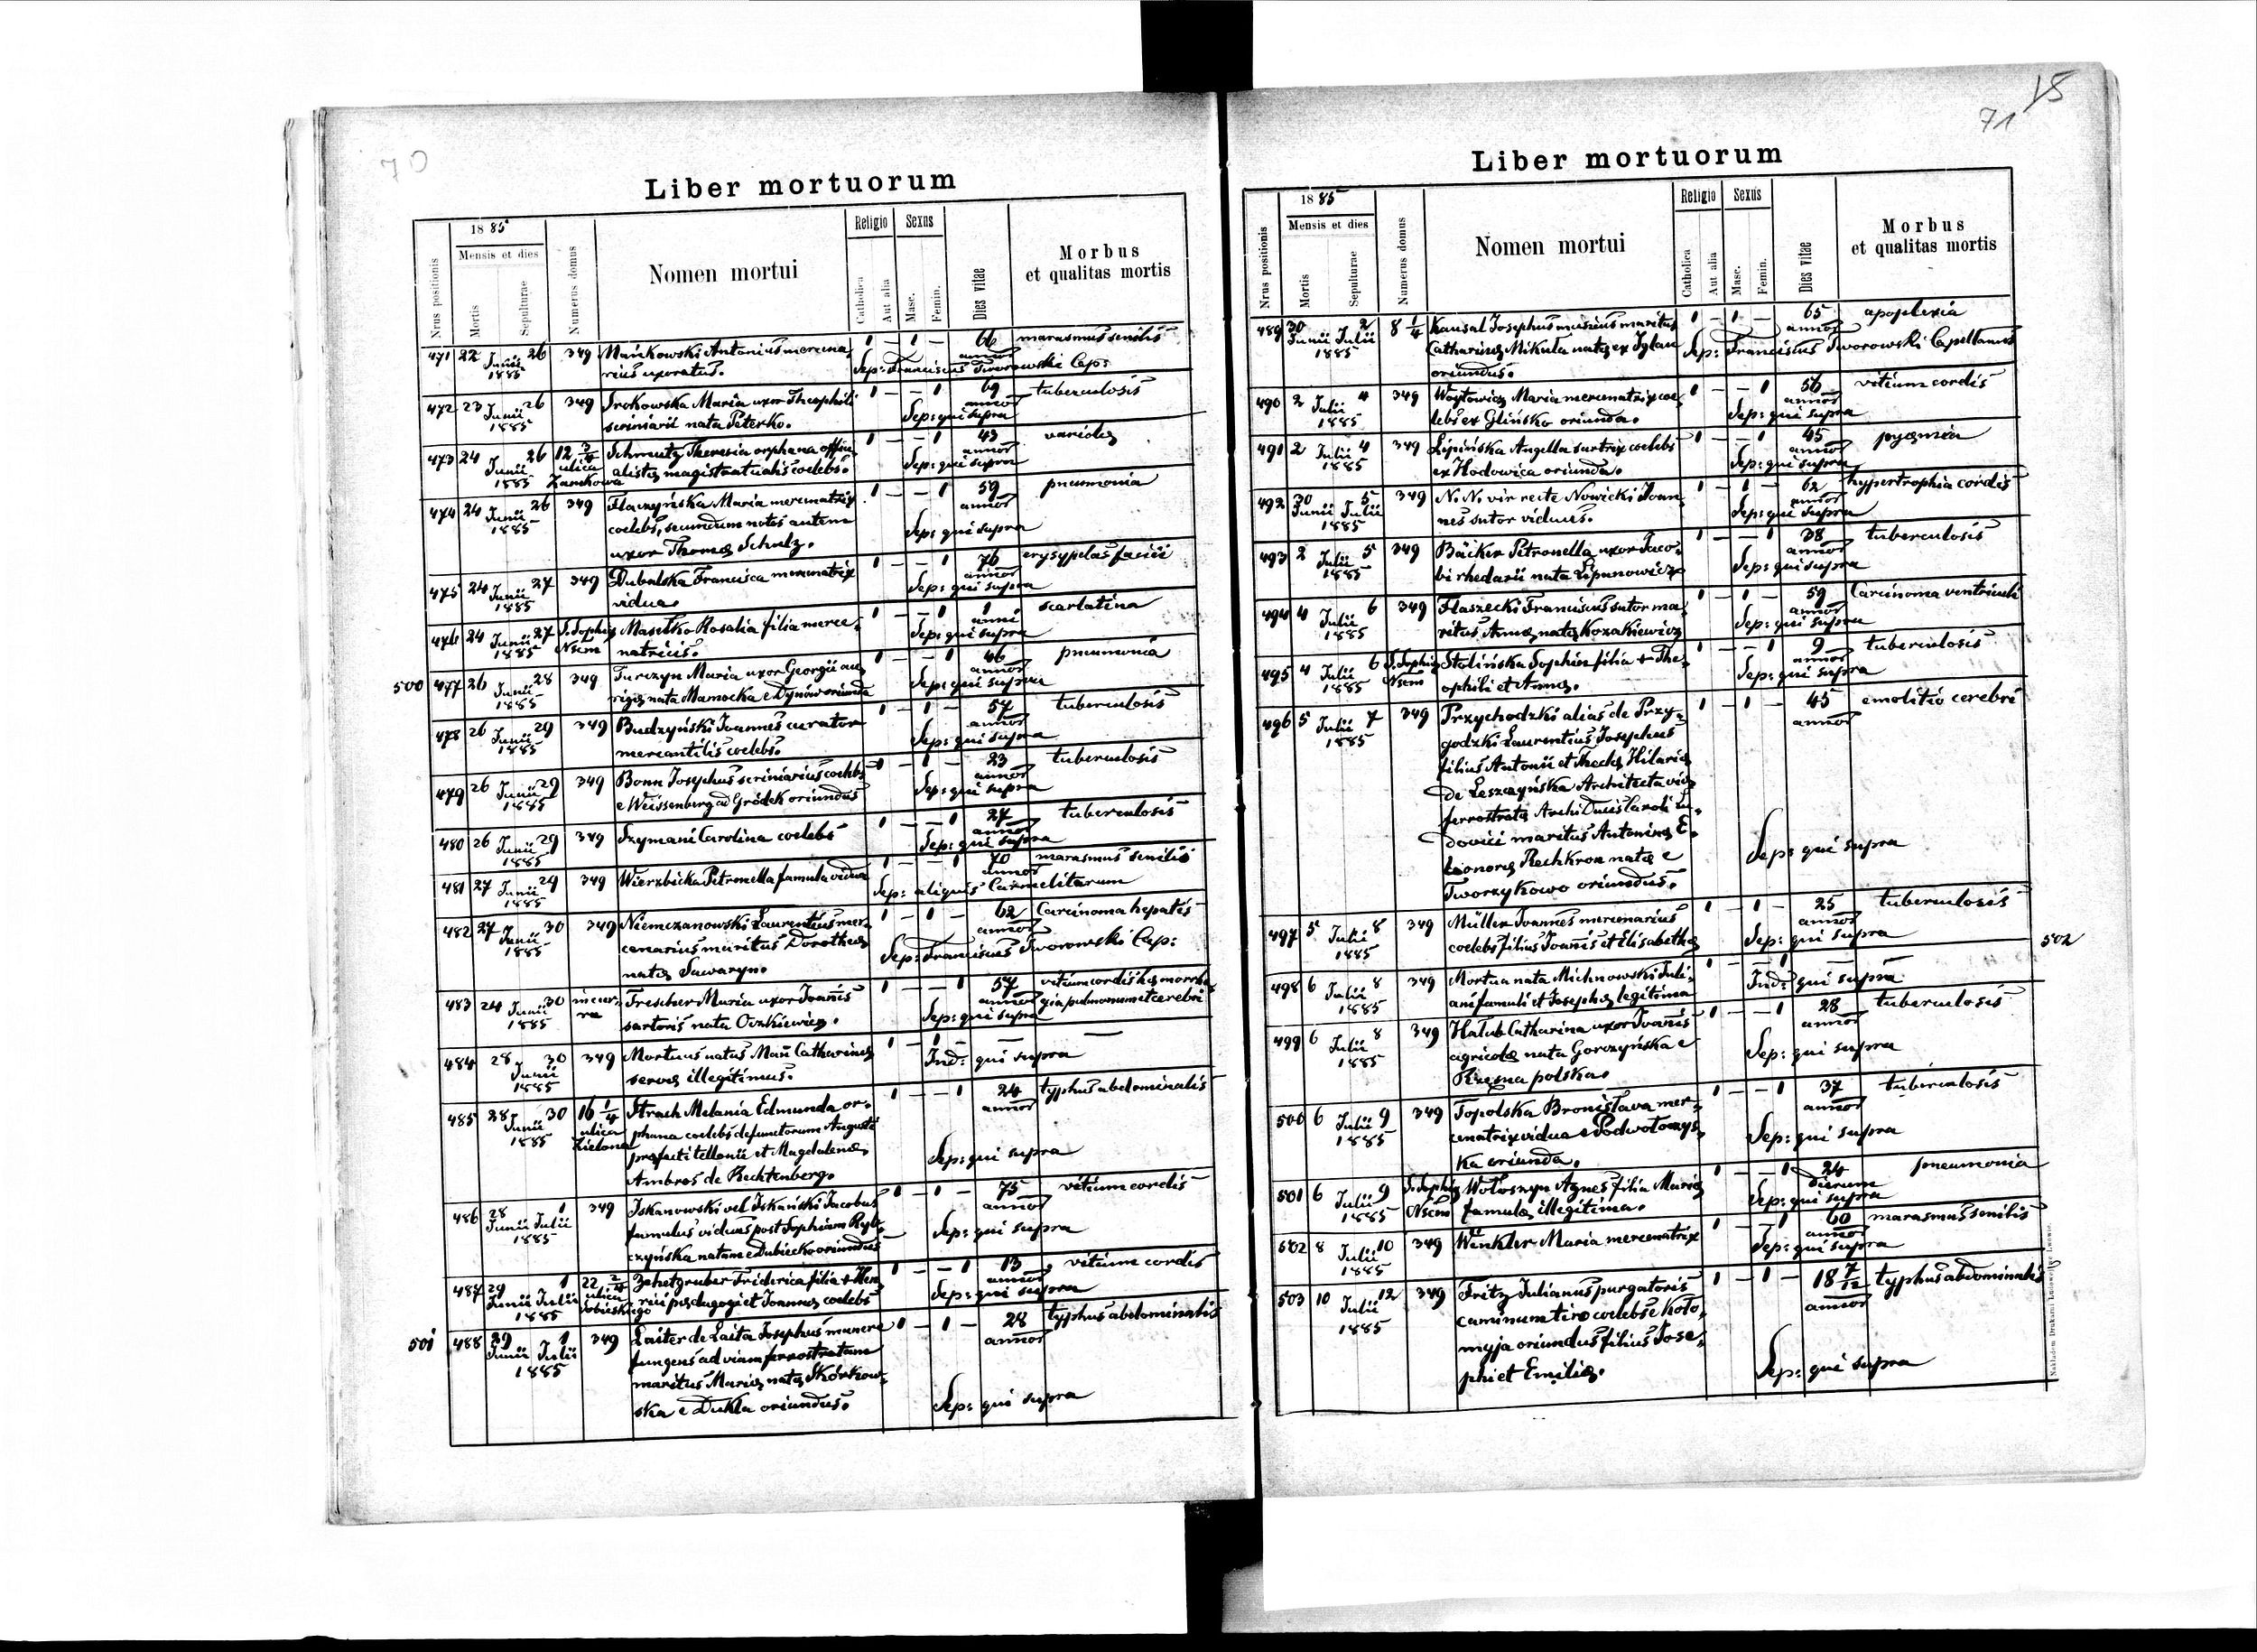 70
Liber mortuorum
Nrus positionis
1885
Mensis et dies
Mortis
Sepulturae
Numerus domus
Nomen mortui
Religio
Catholica
Aut alia
Sexus
Masc.
Femin.
Dies vitae
Morbus
et qualitas mortis
471 22 Junii 26 1885 349 Mańkowski Antonius mercena, 1 – 1 – 66 annor marasmus senilis
rius uxoratus. Sep: Franciscus Tworowski Cap:
472 23 Junii 26 1885 349 Srokowska Maria uxor Theophili 1 – – 1 69 annor tuberculosis
scriniarii nata Peterko. Sep: qui supra
473 24 Junii 26 1885 12 3/4 ulica Zamkowa Schmutz Theresia orphana offici 1 – – 1 43 annor variola
alista magistratualis coelebs. Sep: qui supra
474 24 Junii 26 1885 349 Flaczyńska Maria mercenatrix 1 – – 1 59 annor pneumonia
coelebs, secundum notas autem
uxor Thoma Schulz. Sep: qui supra
475 24 Junii 27 1885 349 Dubalska Francisca mercenatrix 1 – – 1 76 annor erysypelas faciei
vidua. Sep: qui supra
476 24 Junii 27 1885 S. Sophia Nsem Masełko Rosalia filia merce, 1 – – 1 1 anni scarlatina
natricis. Sep: qui supra
500
477 26 Junii 28 1885 349 Turczyn Maria uxor Georgii au, 1 – – 1 46 annor pneumonia
riga nata Mamocka e Dynów oriunda Sep: qui supra
478 26 Junii 29 1885 349 Budzyński Joannes curator 1 – 1 – 57 annor tuberculosis
mercantilis coelebs. Sep: qui supra
479 26 Junii 29 1885 349 Bonn Josephus scriniarius coelebs 1 – 1 – 23 annor tuberculosis
e Weissenberg ad Gródek oriundus Sep: qui supra
480 26 Junii 29 1885 349 Szymani Carolina coelebs 1 – – 1 27 annor tuberculosis
Sep: qui supra
481 27 Junii 29 1885 349 Wierzbicka Petronella famula vidua 1 – – 1 70 annor marasmus senilis
Sep: aliquis Carmelitarum
482 27 Junii 30 1885 349 Niemczanowski Laurentius mer, 1 – 1 – 62 annor Carcinoma hepatis
cenarius maritus Dorothea
nata Sawaryn. Sep: Franciscus Tworowski Cap:
483 24 Junii 30 1885 Trescher Maria uxor Joañis 1 – – 1 57 annor vitium cordis hamorrha,
sartoris nata Oczkiewicz. Sep: qui supra gia pulmonum et cerebri
484 28 Junii 30 1885 349 Mortuus natus Mañ Catharina 1 – 1 – – –
serva illegitimus. Ind: qui supra
485 28 Junii 30 1885 16 1/4 ulica Zielona Strach Melania Edmunda or, 1 – – 1 24 annor typhus abdominalis
phana coelebs defunctorum Augusti
profecti tellonii et Magdalena
Ambros de Rechtenberg. Sep: qui supra
486 28 Junii 1 Julii 1885 349 Iskanowski vel Iskański Jacobus 1 – 1 – 75 annor vitium cordis
famulus viduus post Sophiam Ryb,
czyńska natam e Dubiecko oriundus Sep: qui supra
487 29 Junii 1 Julii 1885 22 2/4 ulica Sobieskiego Zehetgruber Friderica filia + Hen, 1 – – 1 13 annor vitium cordis
rici pædagogi et Joanna coelebs Sep: qui supra
501
488 29 Junii 1 Julii 1885 349 Laiter de Laita Josephus munere 1 – 1 – 28 annor typhus abdominalis
fungens ad viam ferrostratam
maritus Maria nata Skórkow,
ska e Dukla oriundus. Sep: qui supra
15
71
Liber mortuorum
Nrus positionis
1885
Mensis et dies
Mortis
Sepulturae
Numerus domus
Nomen mortui
Religio
Catholica
Aut alia
Sexus
Masc.
Femin.
Dies vitae
Morbus
et qualitas mortis
489 30 Junii 2 Julii 1885 8 1/4 Kausal Josephus musicus maritus 1 – 1 – 65 annor apoplexia
Catharina Mikula nata ex Iglau Sep: Franciscus Tworowski Capellanus
oriundus.
490 2 Julii 4 1885 349 Woytowicz Maria mercenatrix coe, 1 – – 1 56 annor vitium cordis
lebs ex Glińsko oriunda. Sep: qui supra
491 2 Julii 4 1885 349 Lipińska Angella sartrix coelebs 1 – – 1 45 annor pyæmia
ex Hodowica oriunda. Sep: qui supra
492 30 Junii 5 Julii 1885 349 N. N. vir recte Nowicki Joan, 1 – 1 – 62 annor hypertrophia cordis
nes sutor viduus. Sep: qui supra
493 2 Julii 5 1885 349 Bäcker Petronella uxor Jaco, 1 – – 1 38 annor tuberculosis
bi rhedarii nata Lipanowicz Sep: qui supra
494 4 Julii 6 1885 349 Flaszecki Franciscus sutor ma, 1 – 1 – 59 annor Carcinoma ventriculi
ritus Anna nata Kozakiewicz Sep: qui supra
495 4 Julii 6 1885 S. Sophia Nsem Stalińska Sophia filia + The, 1 – – 1 9 annor tuberculosis
ophili et Anna. Sep: qui supra
496 5 Julii 7 1885 349 Przychodzki alias de Przy, 1 – 1 – 45 annor emolitio cerebri
godzki Laurentius Josephus
filius Antonii et Thecla Hilaria
de Leszczyńska Architecta via
ferrostrata ArchiDucis Caroli Lu,
dovici maritus Antonina E,
leonora Rechkron nata e Sep: qui supra
Tworzykowo oriundus.
497 5 Julii 8 1885 349 Müller Joannes mercenarius 1 – 1 – 25 annor tuberculosis
coelebs filius Joanis et Elisabetha Sep: qui supra
502
498 6 Julii 8 1885 349 Mortua nata Michnowski Juli, 1 – – 1 –
ani famuli et Josepha legitima Ind: qui supra
499 6 Julii 8 1885 349 Hałub Catharina uxor Joañis 1 – – 1 28 annor tuberculosis
agricola nata Gorczyńska e Sep: qui supra
Rzęsna polska.
500 6 Julii 9 1885 349 Topolska Bronislava mer, 1 – – 1 37 annor tuberculosis
cenatrix vidua e Podwołoczys, Sep: qui supra
ka oriunda.
501 6 Julii 9 1885 S. Sophia Nsem Wołoszyn Agnes filia Maria 1 – – 1 24 dierum pneumonia
famula illegitima. Sep: qui supra
502 8 Julii 10 1885 349 Winkler Maria mercenatrix 1 – – 1 60 annor marasmus senilis
Sep: qui supra
503 10 Julii 12 1885 349 Fritz Julianus purgatoris 1 – 1 – 18 7/12 annor typhus abdominalis
caminum tiro coelebs e Koło,
myja oriundus filius Jose,
phi et Emilia. Sep: qui supra